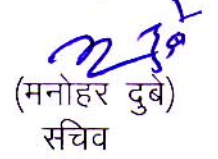 (मनोहर दुबे)
सचिव